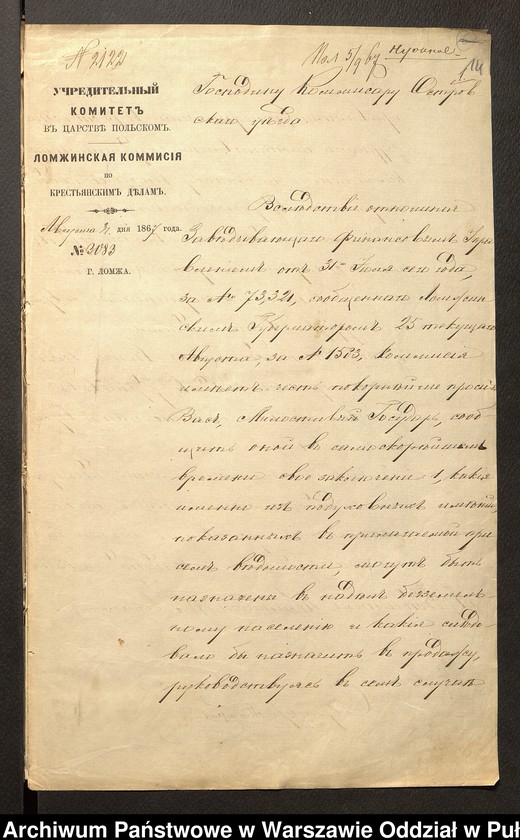 N 2122
Пол 5/9 67
14
УЧРЕДИТЕЛЬНЫЙ
КОМИТЕТЪ
ВЪ ЦАРСТВѢ ПОЛЬСКОМЪ.
ЛОМЖИНСКАЯ КОММИСІЯ
ПО
КРЕСТЬЯНСКИМЪ ДѢЛАМЪ.
Августа дня 1867 года.
№ 3083
Г. ЛОМЖА.
Господину Коммисару Остров
скаго уѣзда
Вслѣдствіе отношенія
Завѣдывающаго финансовымъ Упра
вленіемъ отъ 31 Іюля сего года,
за № 7332, сообщеннаго Ломжин
скимъ Губернаторомъ 25 текущаго
Августа, за № 1503, Коммисія
имѣетъ честь покорнѣйше просить
Васъ, Милостивый Государь, сооб
щить оной въ самоскорѣйшемъ
времени свое заключеніе 1, какія
именно изъ подуховныхъ имѣній,
показанныхъ въ прилагаемой при
семъ вѣдомости, могутъ быть
назначены въ надѣлъ безземель
ному населенію и какія слѣдо
вало бы назначить въ продажу,
руководствуясь въ семъ случаѣ
Archiwum Państwowe w Warszawie Oddział w Puł